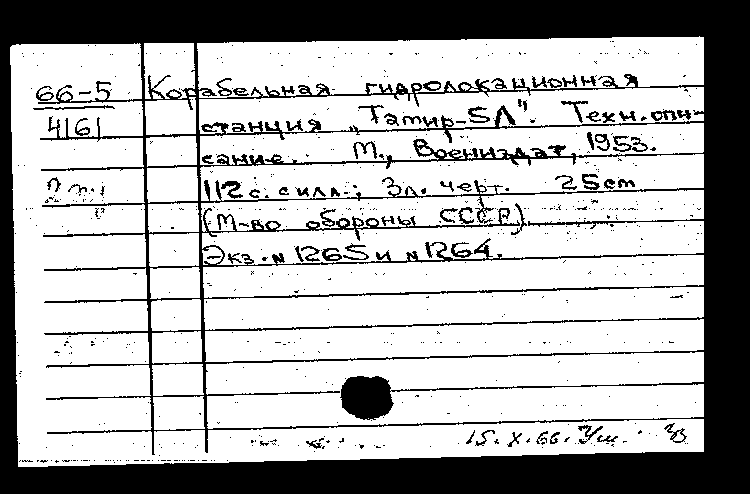 66-5 Корабельная гидролокационная
4161 станция „Тамир-5Л". Техн. опи-
сание. М., Воениздат, 1953.
112 с. с илл.; 3 л. черт. 25 cm
(М-во обороны СССР)
Экз. № 1265 и № 1264.
15.X.66.